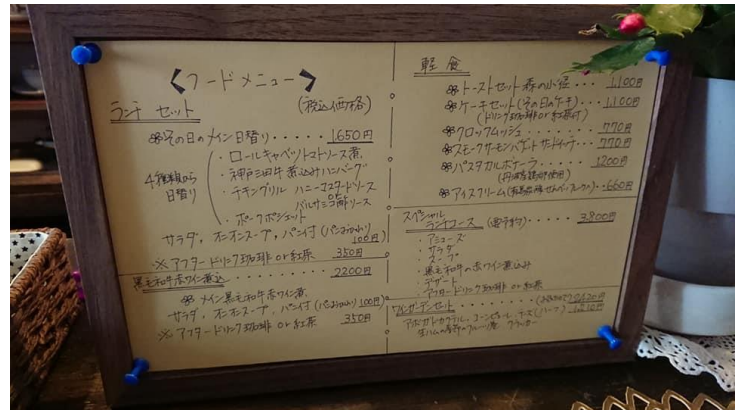 フードメニュー
ランチ セット (税込価格)
その日のメイン 日替り・・・・・ 1650円
4種類から
日替り
・ロールキャベツトマトソース煮
・神戸三田牛煮込みハンバーグ
・チキングリル ハニーマスタードソース
バルサミコ酢ソース
・ポークポジェット
サラダ、オニオンスープ、パン付(パンおかわり
100円)
※アフタードリンク珈琲 or 紅茶 350円
黒毛和牛赤ワイン煮込 ・・・・・・・ 2200円
メイン黒毛和牛赤ワイン煮
サラダ、オニオンスープ、パン付(パンおかわり100円)
※アフタードリンク珈琲 or 紅茶 350円
軽食
トーストセット森の小径・・・ 1,100円
ケーキセット(その日のケーキ)・・・ 1,100円
(ドリンク珈琲 or 紅茶付)
クロックムッシュ・・・・・・ 770円
スモークサーモンバゲットサンドイッチ・・・ 770円
パスタカルボナーラ・・・・・ 1200円
アイスクリーム ・・・ 660円
スペシャル
ランチコース (要予約)・・・・・ 3800円
・アミューズ
・サラダ
・スープ
・黒毛和牛の赤ワイン煮込み
・デザート
・アフタードリンク珈琲 or 紅茶
ワインガーデンセット・・・・・・・・
アボガドカクテル、コーンピューレ、チーズ (ハーフ)
生ハム クラッカー